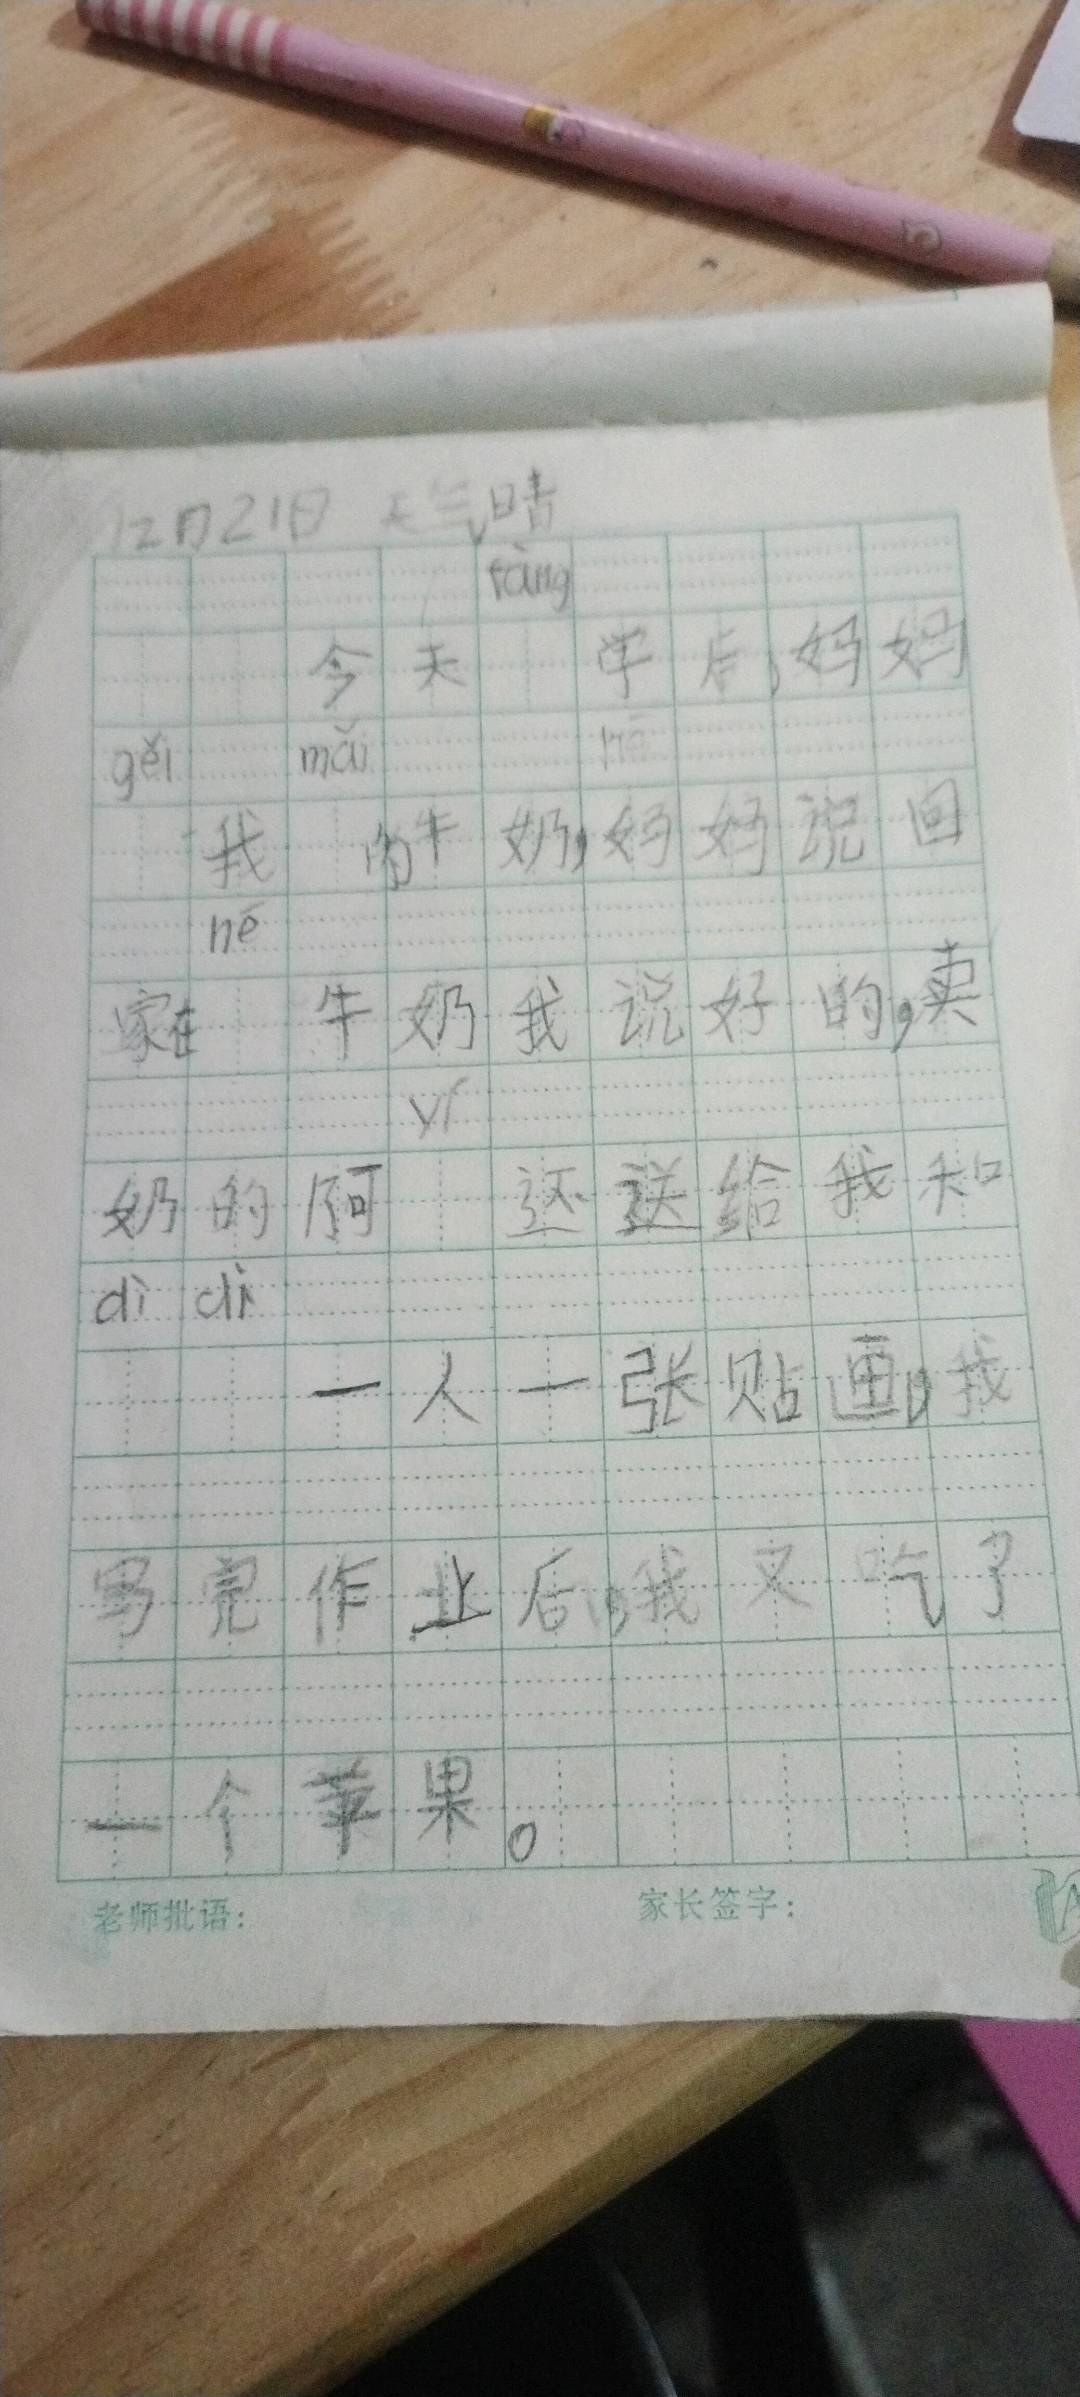 12月21日 天气晴
fàng
今天 学后,妈妈
gěi mǎi
我 的牛奶,妈妈说回
hē
家在 牛奶我说好的,卖
yí
奶的阿 还送给我和
dì di
一人一张贴画,我
写完作业后,我又吃了
一个苹果。
老师批语: 家长签字: